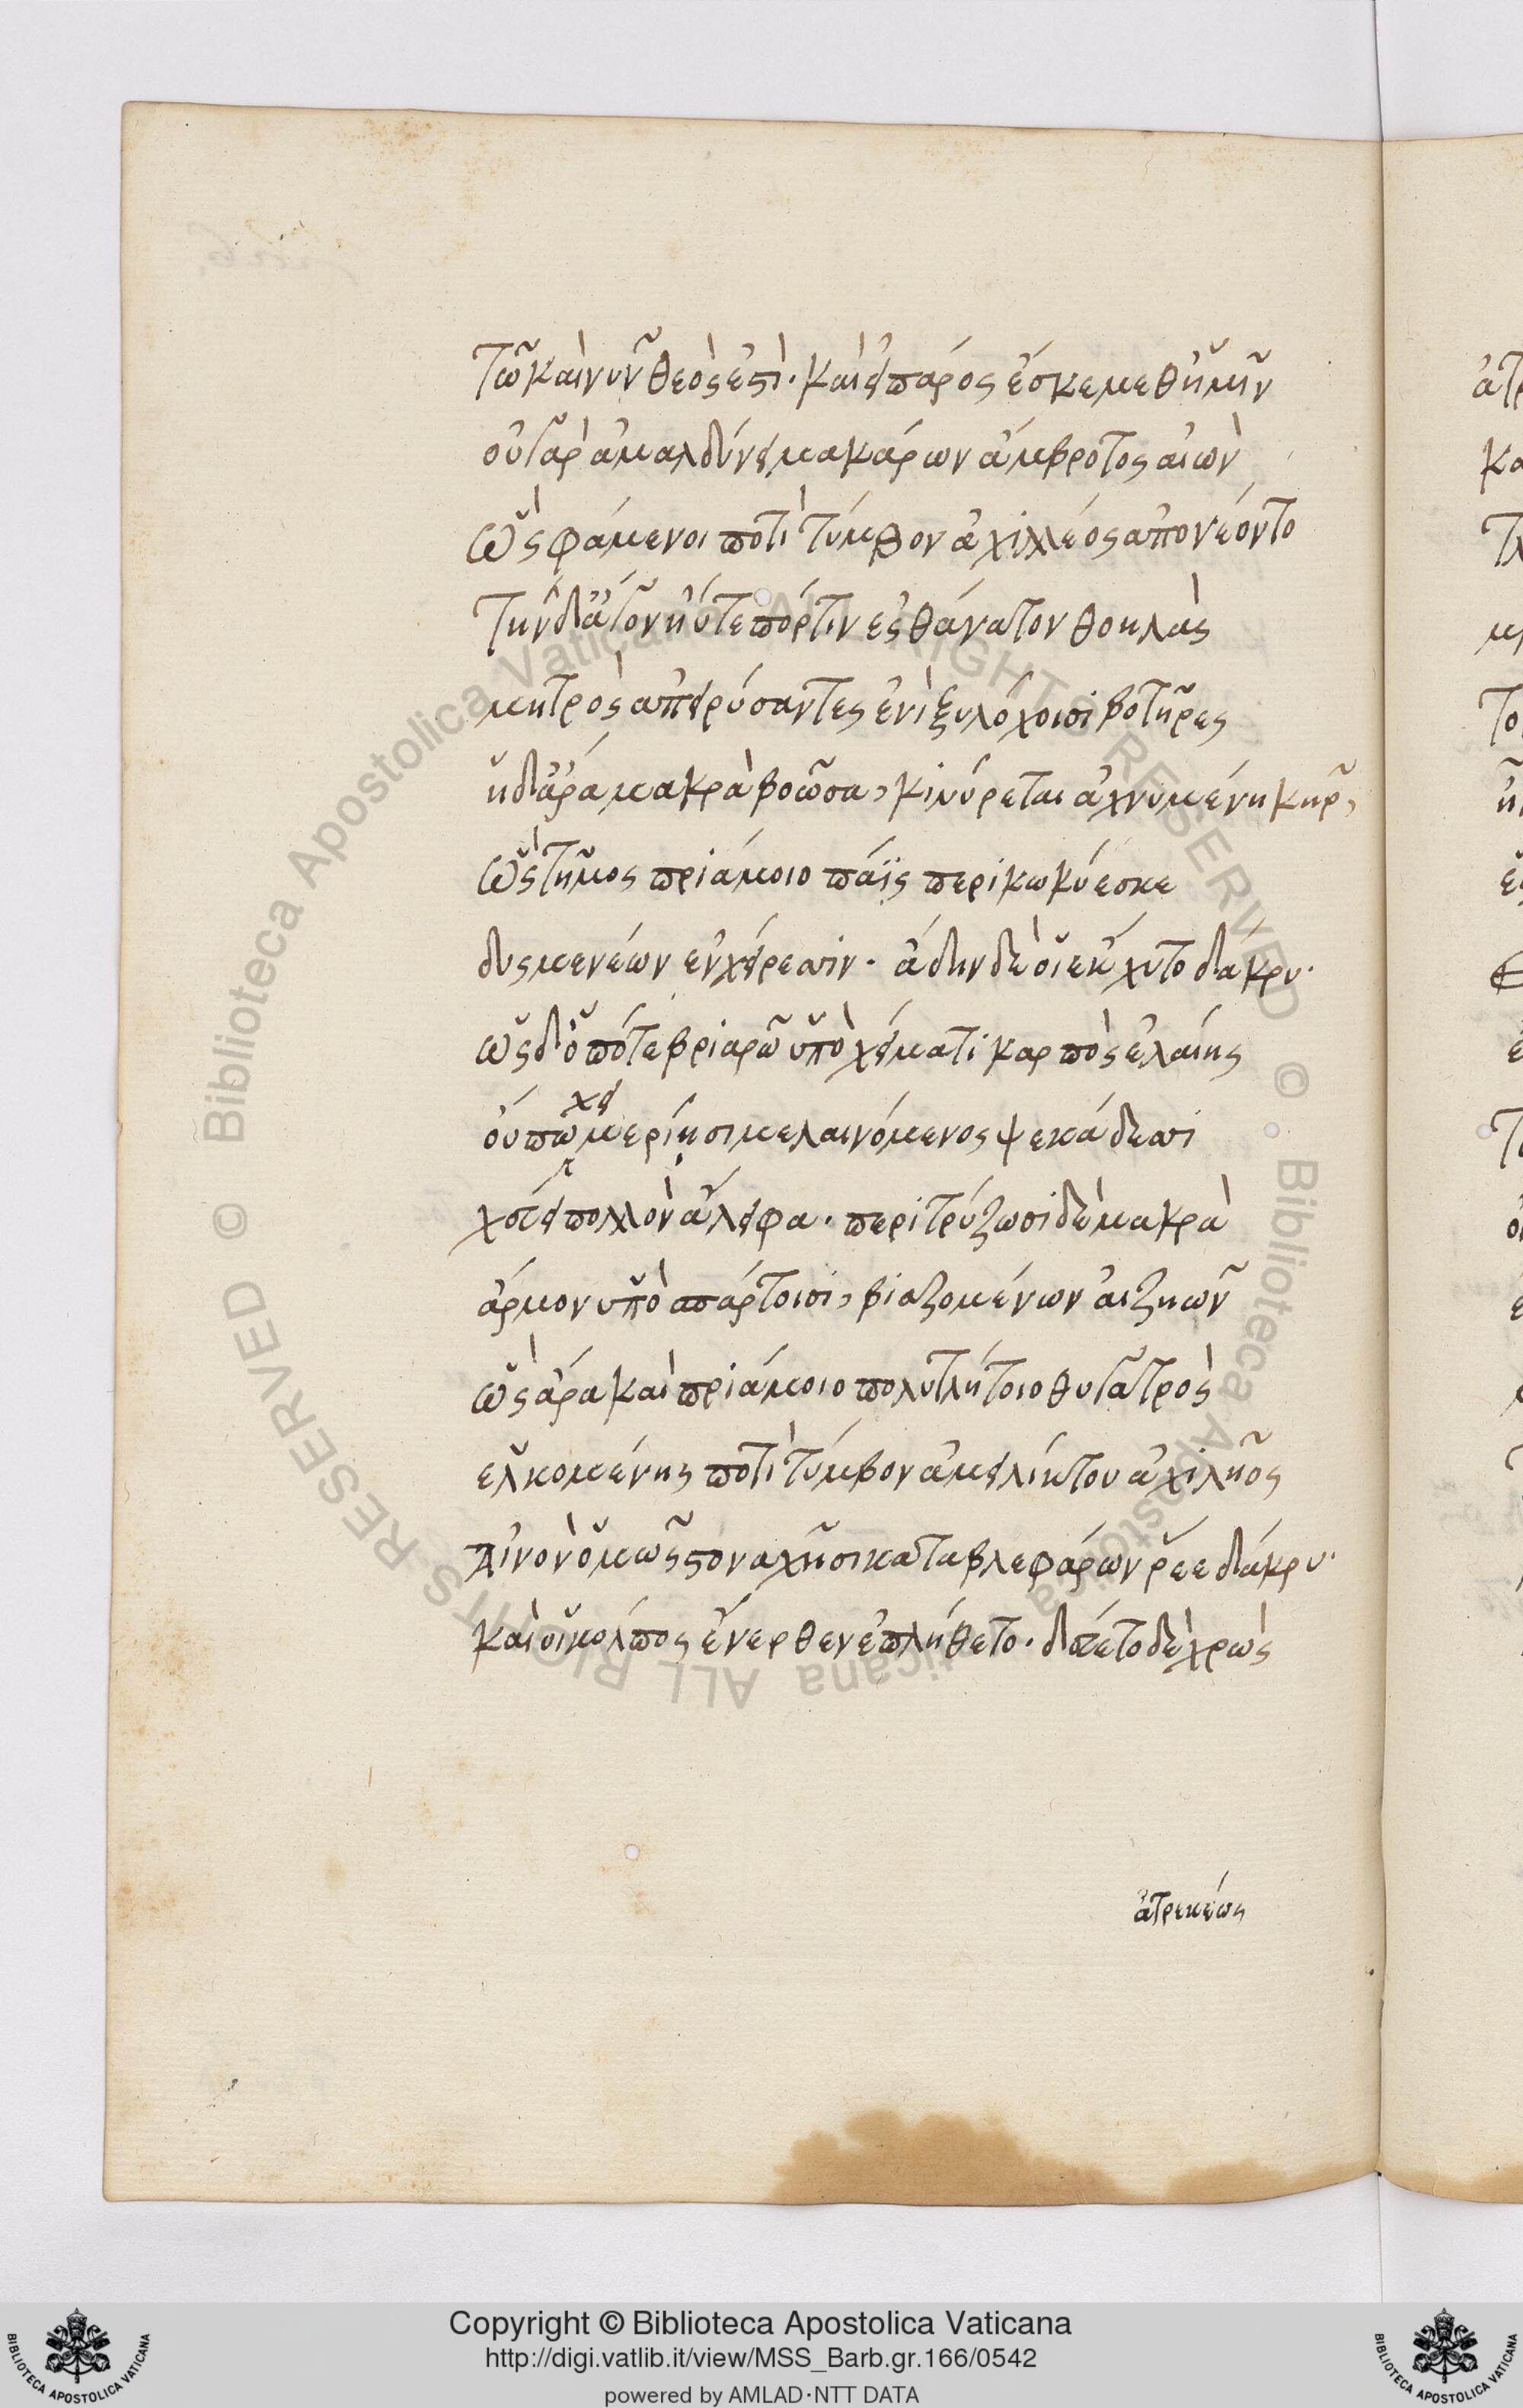 τῶ καὶ νῦν θεὸς ἐστὶ· καὶ εἰ πάρος ἔσκε μεθ' ἡμῖν
οὐ γὰρ ἀμαλδύνει μακάρων ἄμβροτος αἰὼν
ὣς φάμενοι ποτὶ τύμβον ἀχιλλέος απονέοντο
τὴν δ' ἄγον ἠΰτε πόρτιν ἐς θάνατον θοηλὰς
μητρὸς απειρύσαντες ἐνὶ ξυλόχοισι βοτῆρες
ἡ δ' ἄρα μακρὰ βοῶσα, κινύρεται ἀχνυμένη κῆρ,
ὣς τῆμος πριάμοιο πάϊς περικωκύεσκε
δυσμενέων ἐν χείρεσιν· ἄδην δέ οἱ ἔκχυτο δάκρυ·
ὡς δ' ὁπότε βριαρῶ ὑπὸ χείματι καρπὸς ἐλαίης
χει
οὔπω μερίησι μελαινόμενος ψεκάδεσσι
χεύει πολλὸν ἄλειφα· περιτρύζωσι δὲ μακρὰ
ἄρμον ὑπὸ σπάρτοισι, βιαζομένων αἰζηῶν
ὣς ἄρα καὶ πριάμοιο πολυτλήτοιο θυγατρὸς
ἑλκομένης ποτὶ τύμβον ἀμειλίκτου ἀχιλῆος
αἰνὸν ὁμῶς στοναχῆσι κατα βλεφάρων ῥέε δάκρυ·
καὶ οἱ κόλπος ἔνερθεν ἐπλήθετο· δεύετο δὲ χρὼς
ἀτρεκέως
Copyright © Biblioteca Apostolica Vaticana
http://digi.vatlib.it/view/MSS_Barb.gr.166/0542
powered by AMLAD·NTT DATA